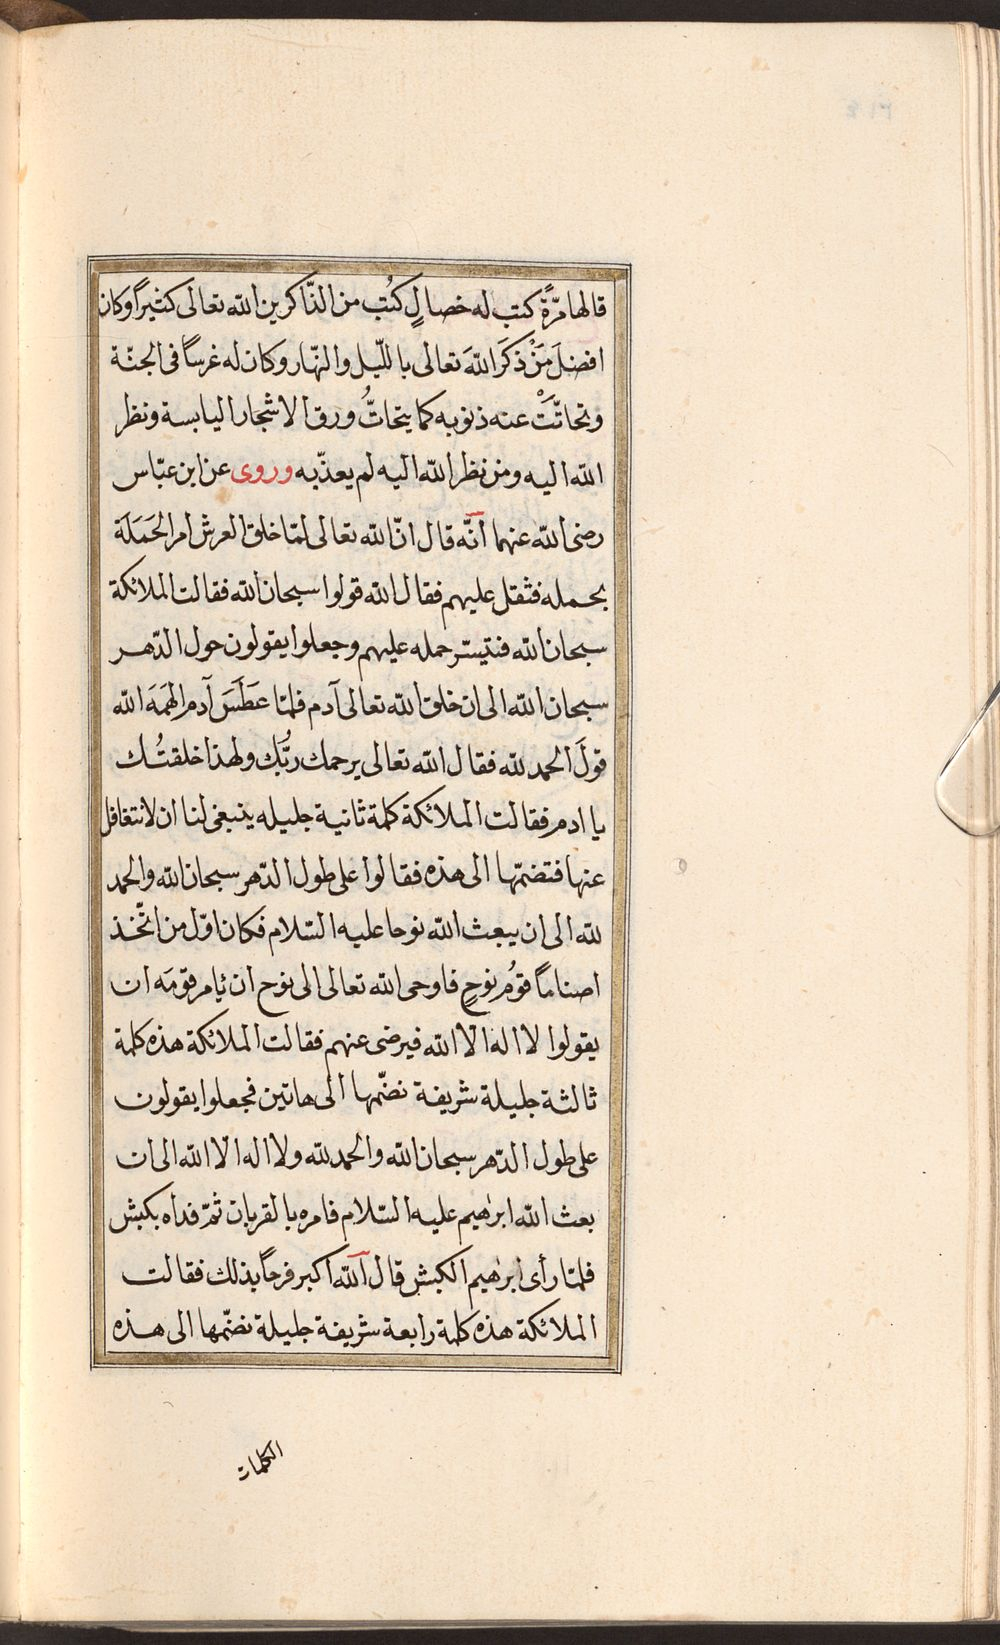 قالها مرّةً كتب له خصالٍ كُتب من الذّاكرين الله تعالى كثيراً وكان
افضلَ مَنْ ذكَرَ اللهَ تعالى بالليل والنّهار وكان له غرساً فى الجنّة
وتحاتّتْ عنه ذنوبه كما يتحاتُّ ورق الاشجار اليابسة ونظر
الله اليه ومن نظر الله اليه لم يعذّبه وروى عن ابن عبّاس
رضى الله عنهما انّه قال انّ الله تعالى لمّا خلق العرش امر الحَمَلَة
بحمله فثقل عليهم فقال الله قولوا سبحان الله فقالت الملائكة
سبحان الله فتيسّر حمله عليهم وجعلوا يقولون حول الدّهر
سبحان الله الى ان خلق الله تعالى آدم فلمّا عَطَسَ آدم الهَمَهَ الله
قولَ الحمد لله فقال الله تعالى يرحمك ربُّك ولهذا خلقتُك
يا ادم فقالت الملائكة كلمة ثانية جليله ينبغى لنا ان لا نتغافل
عنها فتضمّها الى هذه فقالوا على طول الدّهر سبحان الله والحمد
لله الى ان يبعث الله نوحا عليه السّلام فكان اوّل من اتّخذ
اصناماً قومُ نوحٍ فاوحى الله تعالى الى نوح ان يأمر قومَه ان
يقولوا لا اله الا الله فيرضى عنهم فقالت الملائكة هذه كلمة
ثالثة جليلة شريفة نضّمها الى هاتين فجعلوا يقولون
على طول الدّهر سبحان الله والحمد لله ولا اله الا الله الى ان
بعث الله ابرهيم عليه السّلام فامره بالقربان ثمّ فداه بكبش
فلمّا رأى ابرهيم الكبش قال الله اكبر فرحاً بذلك فقالت
الملائكة هذه كلمة رابعة شريفة جليلة نضّمها الى هذه
الكلمات